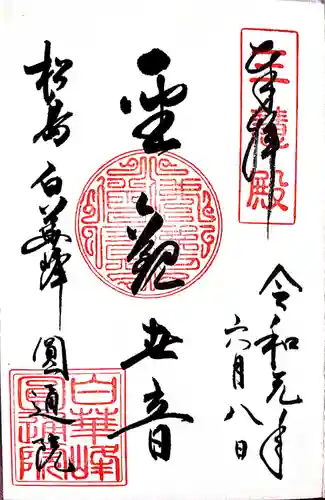 奉拝
三慧殿
令和元年
六月八日
聖観世音
松島 白華峰 圓通院
白華峰
圓通院